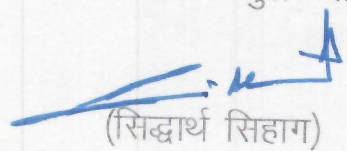 (सिद्धार्थ सिहाग)